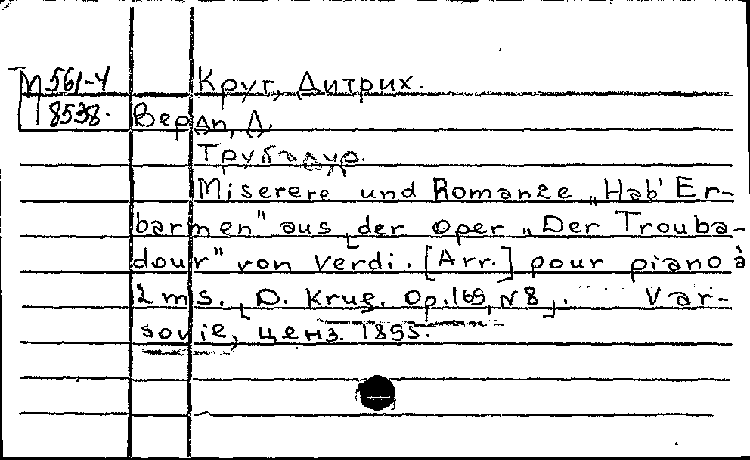 М 561-4 Круг, Дитрих.
8538. Верди, Д.
Трубадур.
Miserere und Romanze „Hab' Er-
barmen" aus der Oper „Der Trouba-
dour" von Verdi. [Arr.] pour piano à
2 ms. [D. Krug. Op. 169, N 8]. Var-
sovie, ценз. 1855.